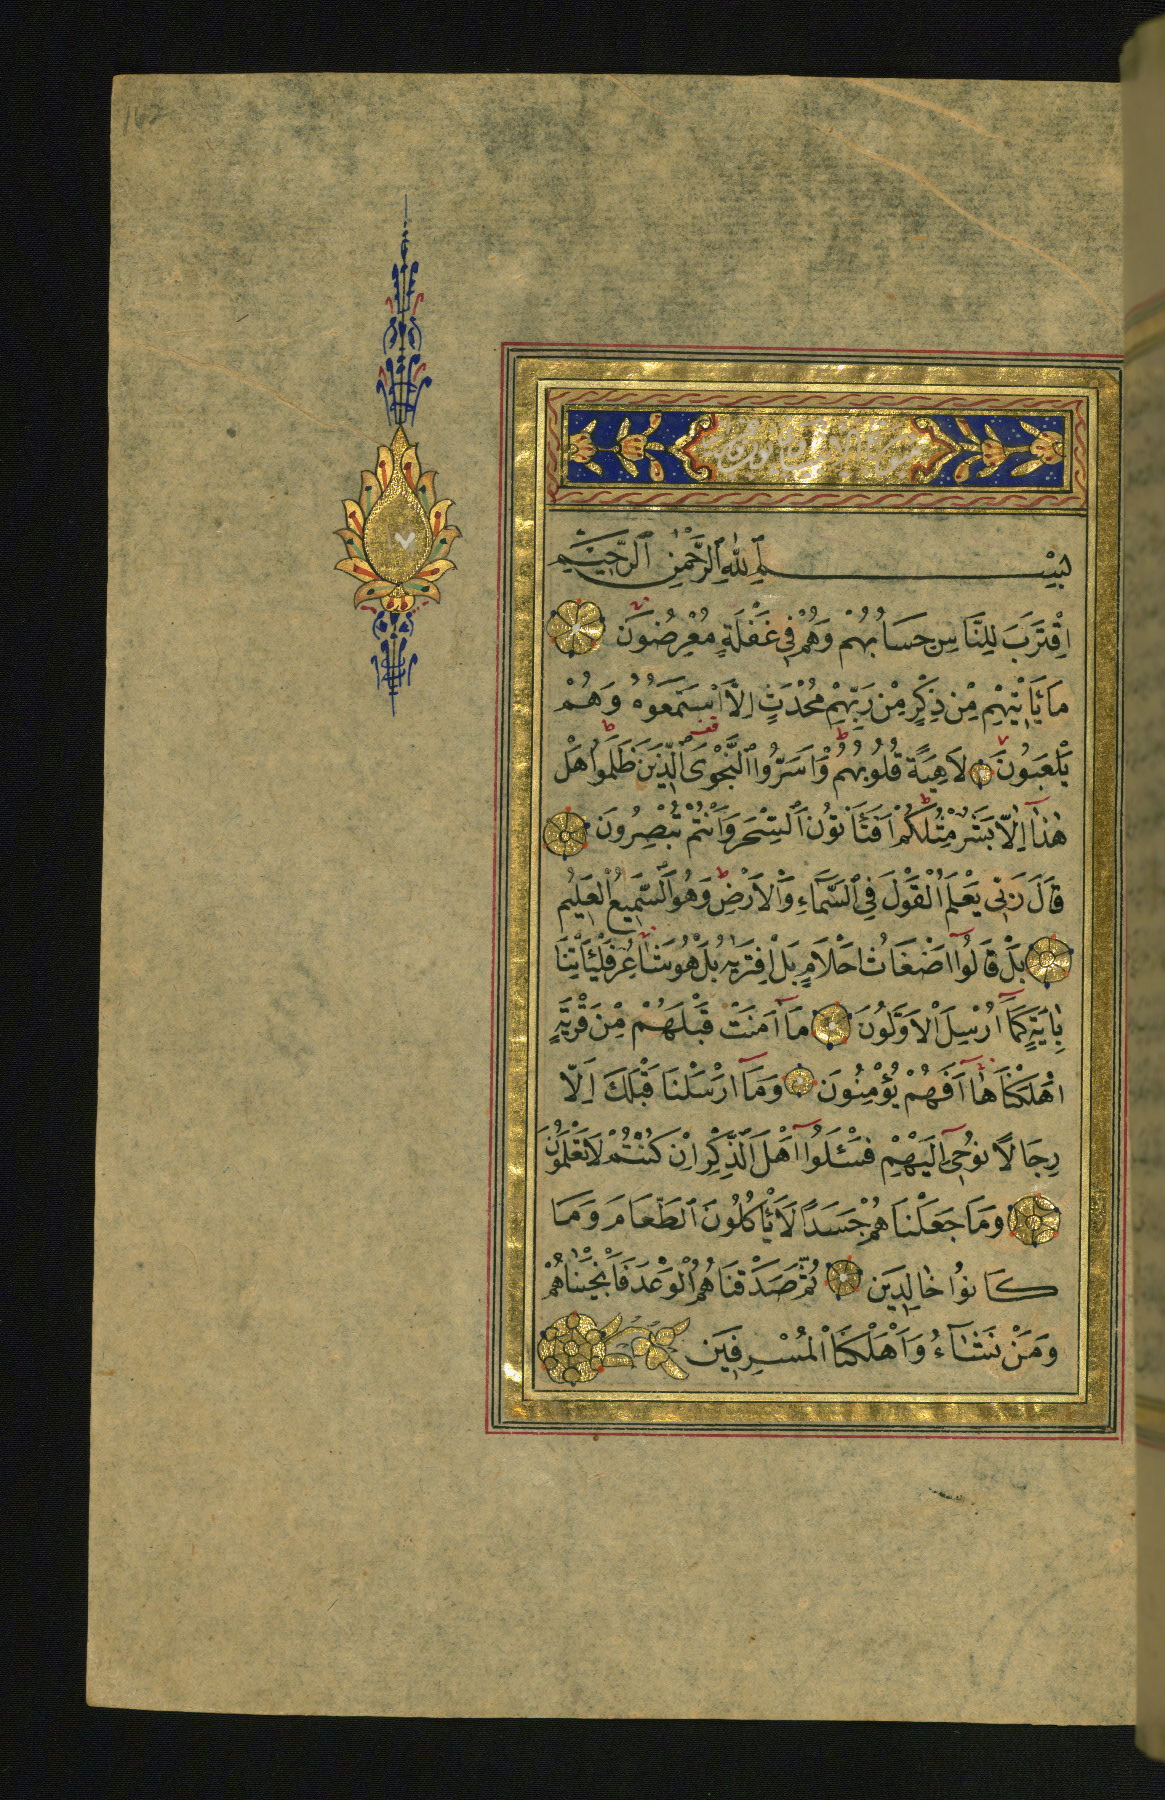 162
٧
بسم الله الرحمن الرحيم
اِقْتَرَبَ لِلنَّاسِ حِسَابُهُمْ وَهُمْ فِى غَفْلَةٍ مُعْرِضُونَ
مَا يَأْتِيهِمْ مِنْ ذِكْرٍ مِنْ رَبِّهِمْ مُحْدَثٍ اِلَّا اسْتَمَعُوهُ وَهُمْ
يَلْعَبُونَ لَاهِيَةً قُلُوبُهُمْ وَاَسَرُّوا النَّجْوَى الَّذِينَ ظَلَمُوا هَلْ
هٰذَا اِلَّا بَشَرٌ مِثْلُكُمْ اَفَتَأْتُونَ السِّحْرَ وَاَنْتُمْ تُبْصِرُونَ
قَالَ رَبِّى يَعْلَمُ الْقَوْلَ فِى السَّمَاءِ وَالْاَرْضِ وَهُوَ السَّمِيعُ الْعَلِيمُ
بَلْ قَالُوا اَضْغَاثُ اَحْلَامٍ بَلِ افْتَرٰيهُ بَلْ هُوَ شَاعِرٌ فَلْيَأْتِنَا
بِاٰيَةٍ كَمَا اُرْسِلَ الْاَوَّلُونَ مَا اٰمَنَتْ قَبْلَهُمْ مِنْ قَرْيَةٍ
اَهْلَكْنَاهَا اَفَهُمْ يُؤْمِنُونَ وَمَا اَرْسَلْنَا قَبْلَكَ اِلَّا
رِجَالًا نُوحِى اِلَيْهِمْ فَسْئَلُوا اَهْلَ الذِّكْرِ اِنْ كُنْتُمْ لَا تَعْلَمُونَ
وَمَا جَعَلْنَاهُمْ جَسَدًا لَا يَأْكُلُونَ الطَّعَامَ وَمَا
كَانُوا خَالِدِينَ ثُمَّ صَدَقْنَاهُمُ الْوَعْدَ فَاَنْجَيْنَاهُمْ
وَمَنْ نَشَاءُ وَاَهْلَكْنَا الْمُسْرِفِينَ